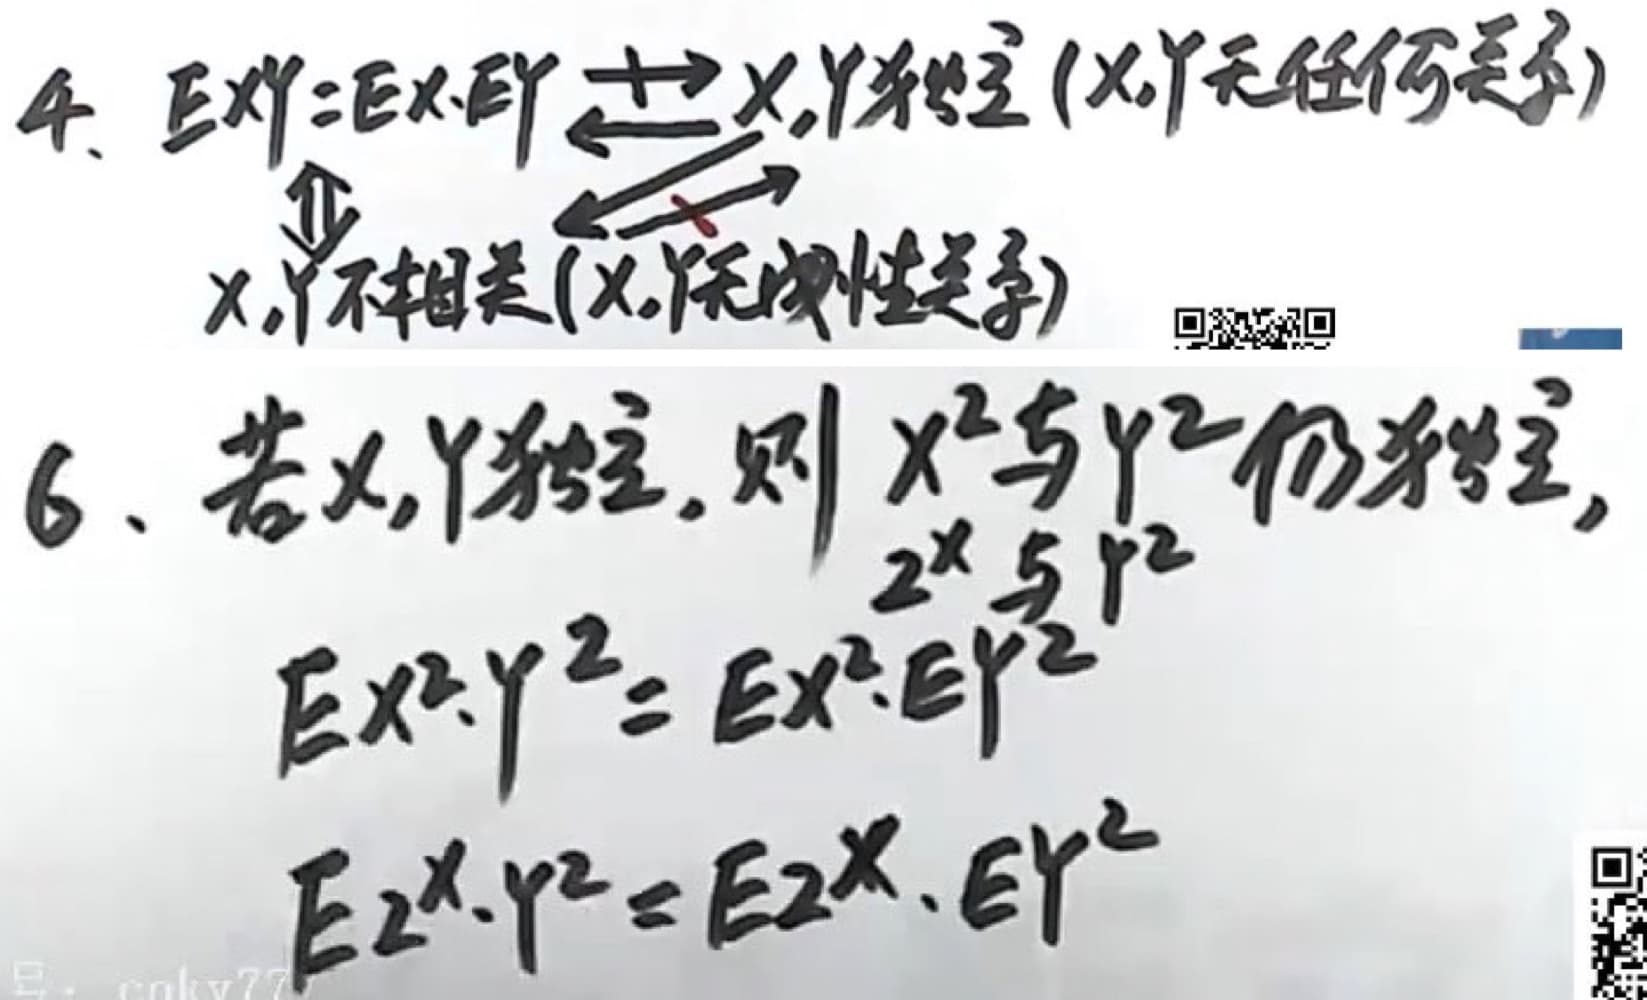 4、EXY=EX·EY ⇸ X,Y独立(X,Y无任何关系)
←
⇕
X,Y不相关(X,Y无线性关系)
6、若X,Y独立,则 X²与Y²仍独立,
2ˣ与Y²
EX²·Y²=EX²·EY²
E2ˣ·Y²=E2ˣ·EY²
号: cnky777